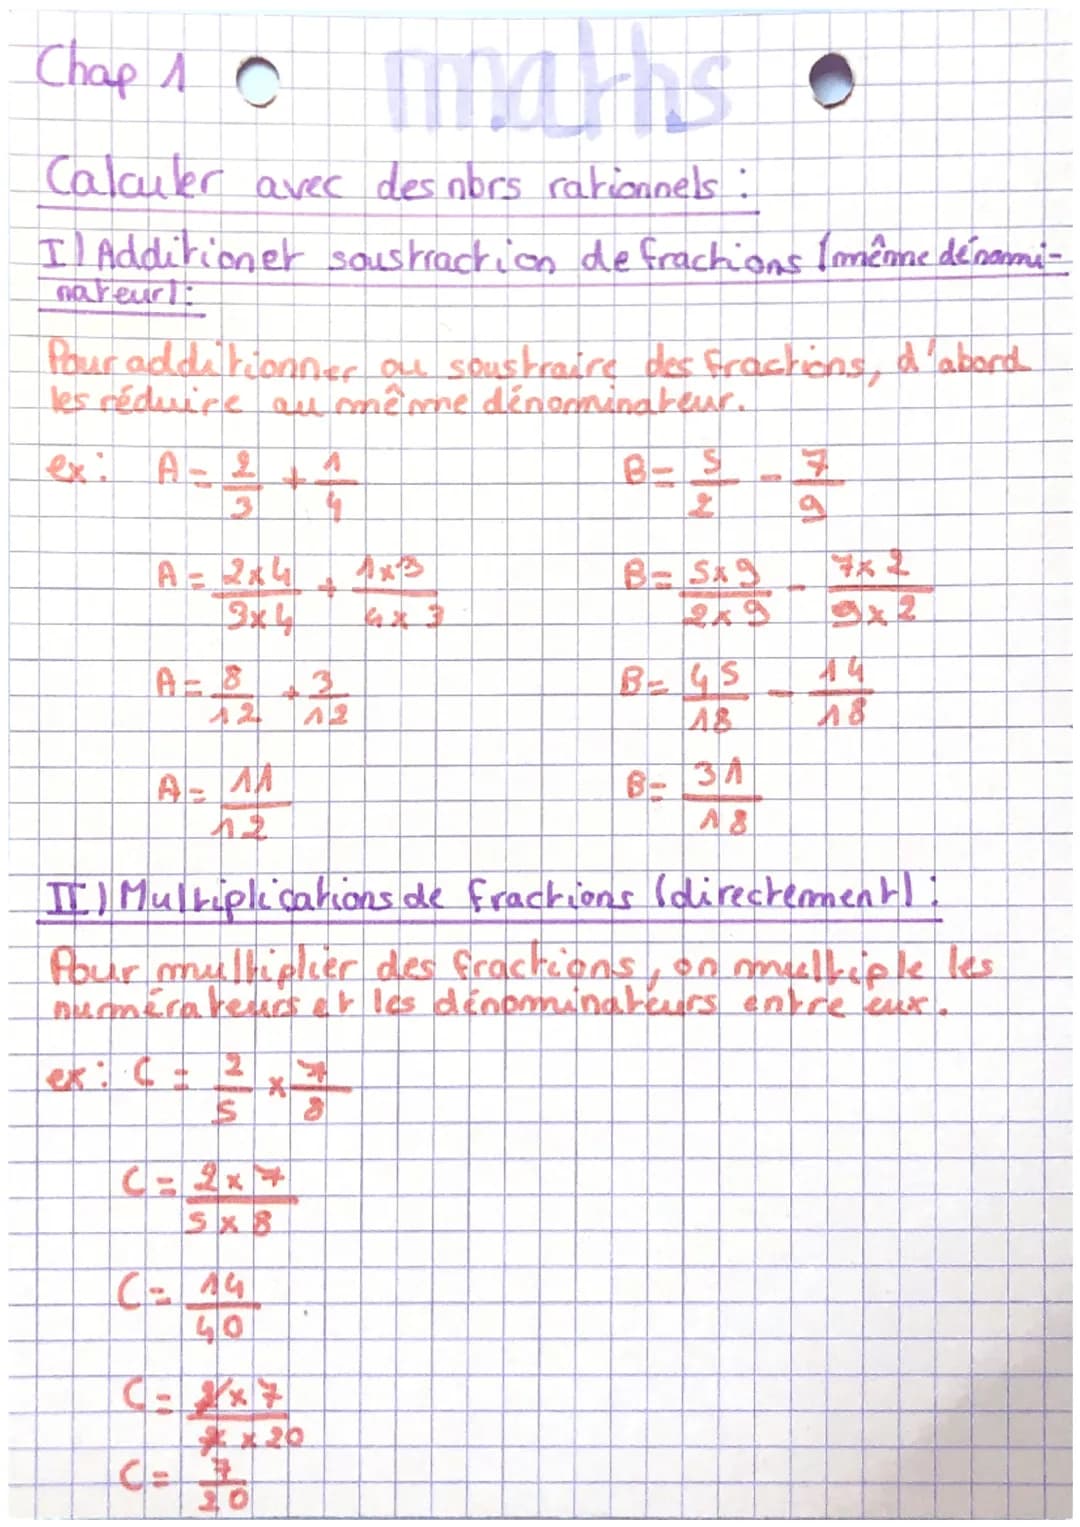 Chap 1 maths
Calculer avec des nbrs rationnels :
I) Addition et soustraction de fractions (même dénomi-
nateur) :
Pour additionner ou soustraire des fractions, d'abord
les réduire au même dénominateur.
ex : A = 2/3 + 1/4 B = 5/2 - 7/9
A = 2x4/3x4 + 1x3/4x3 B = 5x9/2x9 - 7x2/9x2
A = 8/12 + 3/12 B = 45/18 - 14/18
A = 11/12 B = 31/18
II) Multiplications de fractions (directement) :
Pour multiplier des fractions, on multiple les
numérateurs et les dénominateurs entre eux.
ex : C = 2/5 x 7/8
C = 2x7/5x8
C = 14/40
C = 2x7/2x20
C = 7/20